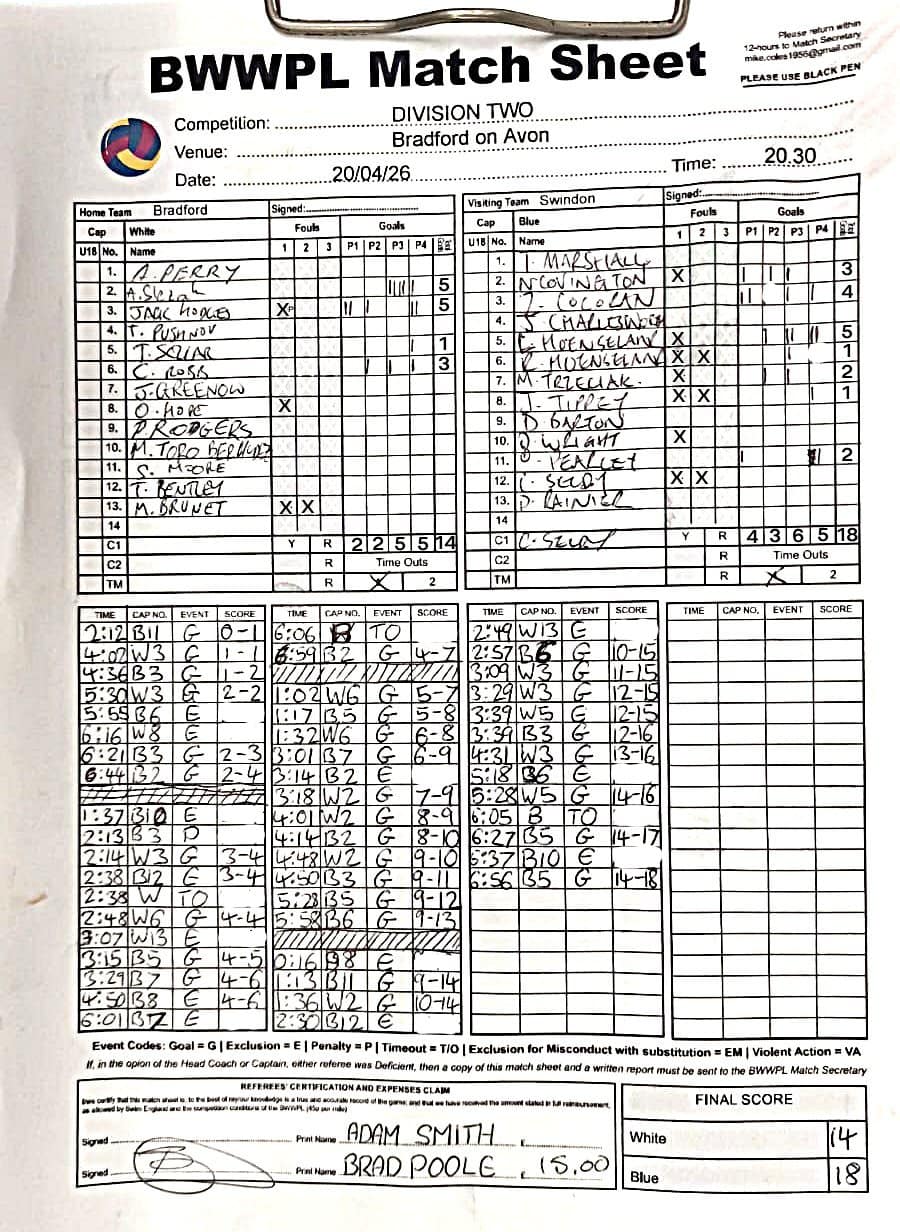 Please return within
12-hours to Match Secretary
mike.coles1956@gmail.com
PLEASE USE BLACK PEN
BWWPL Match Sheet
Competition: DIVISION TWO
Venue: Bradford on Avon
Date: 20/04/26 Time: 20.30
Home Team Bradford Signed:
Cap White Fouls Goals
U18 No. Name 1 2 3 P1 P2 P3 P4
1. A. PERRY
2. A. 5
3. JACK HODGES X P 5
4. T. PUSHNOV
5. T. SQUAR 1
6. C. ROSS 3
7. J. GREENOW
8. O. HOPE X
9. P. RODGERS
10. M. TORO
11. S. MOORE
12. T. BENTLEY
13. M. BRUNET X X
14
C1 Y R 2 2 5 5 14
C2 R Time Outs
TM R X 2
Visiting Team Swindon Signed:
Cap Blue Fouls Goals
U18 No. Name 1 2 3 P1 P2 P3 P4
1. T. MARSHALL
2. N COVINGTON X 3
3. COCOLAN 4
4. S
5. HOENSELAN X 5
6. HOENSELAN X X 1
7. M. TRZECIAK X 2
8. J. TIPPEY X X 1
9. D. BARTON
10. WRIGHT X
11. 2
12. C. SELBY X X
13. D. RAINIER
14
C1 C. SELBY Y R 4 3 6 5 18
C2 R Time Outs
TM R X 2
TIME CAP NO. EVENT SCORE
2:12 B11 G 0-1
4:02 W3 G 1-1
4:36 B3 G 1-2
5:30 W3 G 2-2
5:55 B6 E
6:16 W8 E
6:21 B3 G 2-3
6:44 B2 G 2-4
1:37 B10 E
2:13 B3 P
2:14 W3 G 3-4
2:38 B12 E 3-4
2:38 W TO
2:48 W6 G 4-4
3:07 W13 E
3:15 B5 G 4-5
3:29 B7 G 4-6
4:50 B8 E 4-6
6:01 E
TIME CAP NO. EVENT SCORE
6:06 TO
6:59 B2 G 4-7
1:02 W6 G 5-7
1:17 B5 G 5-8
1:32 W6 G 6-8
3:01 B7 G 6-9
3:14 B2 E
3:18 W2 G 7-9
4:01 W2 G 8-9
4:14 B2 G 8-10
4:48 W2 G 9-10
4:50 B3 G 9-11
5:23 B5 G 9-12
5:58 B6 G 9-13
0:16 B8 E
1:13 B11 G 9-14
1:36 W2 G 10-14
2:30 B12 E
TIME CAP NO. EVENT SCORE
2:49 W13 E
2:57 B6 G 10-15
3:09 W3 G 11-15
3:29 W3 G 12-15
3:39 W5 E 12-15
3:39 B3 G 12-16
4:31 W3 G 13-16
5:18 B6 E
5:28 W5 G 14-16
6:05 B TO
6:27 B5 G 14-17
6:37 B10 E
6:56 B5 G 14-18
TIME CAP NO. EVENT SCORE
Event Codes: Goal = G | Exclusion = E | Penalty = P | Timeout = T/O | Exclusion for Misconduct with substitution = EM | Violent Action = VA
If, in the opion of the Head Coach or Captain, either referee was Deficient, then a copy of this match sheet and a written report must be sent to the BWWPL Match Secretary
REFEREES' CERTIFICATION AND EXPENSES CLAIM
Signed Print Name ADAM SMITH
Signed Print Name BRAD POOLE 15.00
FINAL SCORE
White 14
Blue 18